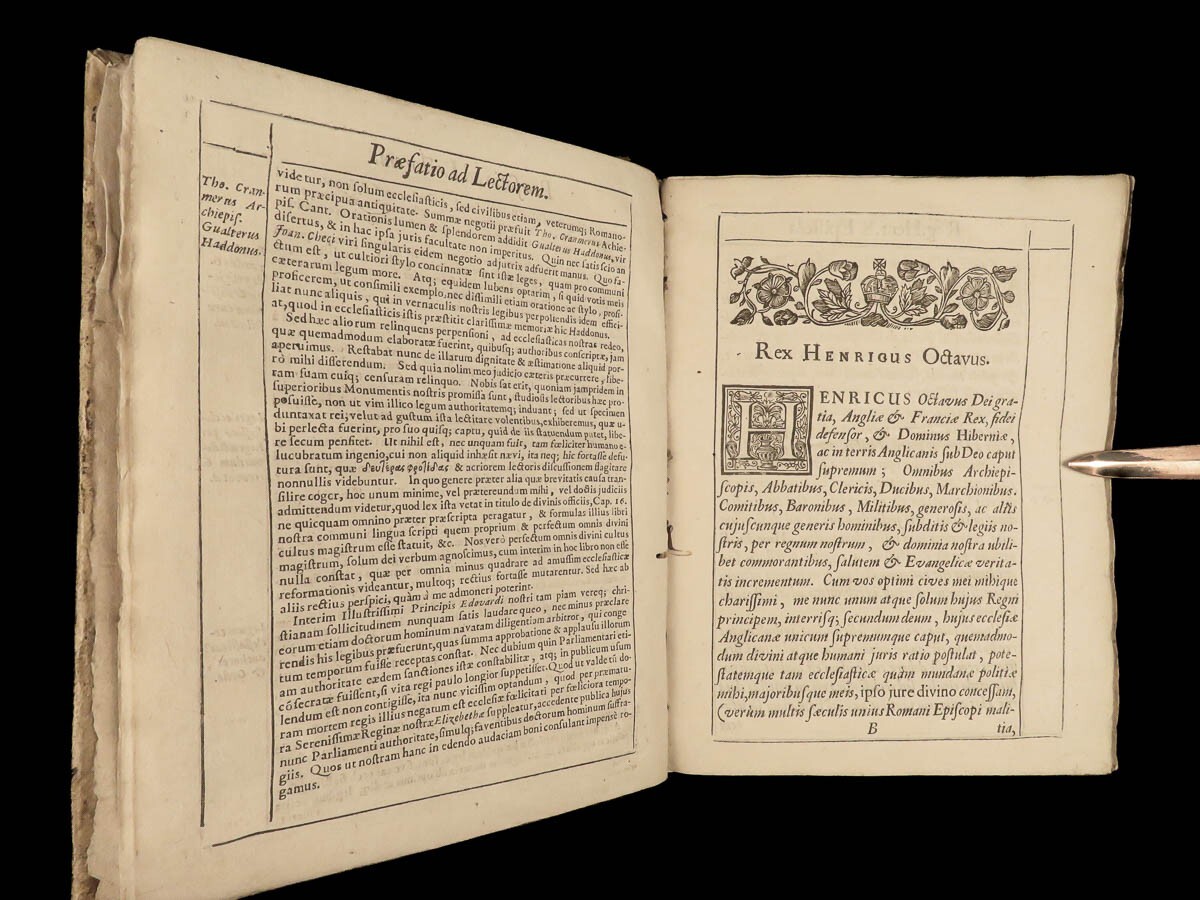 Præfatio ad Lectorem.
Tho. Cran-
merus Ar-
chiepis.
Gualterus
Haddonus.
videtur, non solum ecclesiasticis, sed civilibus etiam, veterumq; Romano-
rum præcipua antiquitate. Summæ negotii præfuit Tho. Cranmerus Achie-
pis. Cant. Orationis lumen & splendorem addidit Gualterus Haddonus, vir
disertus, & in hac ipsa juris facultate non imperitus. Quin nec satis scio an
Joan. Checi viri singularis eidem negotio adjutrix adfuerit manus. Quo fa-
ctum est, ut cultiori stylo concinnatæ sint istæ leges, quam pro communi
cæterarum legum more. Atq; equidem lubens optarim, si quid votis meis
proficerem, ut consimili exemplo, nec dissimili etiam oratione ac stylo, prosi-
liat nunc aliquis, qui in vernaculis nostris legibus perpoliendis idem effici-
at, quod in ecclesiasticis istis præstitit clarissimæ memoriæ hic Haddonus.
Sed hæc aliorum relinquens perpensioni, ad ecclesiasticas nostras redeo,
quæ quemadmodum elaboratæ fuerint, quibusq; authoribus conscriptæ, jam
aperuimus. Restabat nunc de illarum dignitate & æstimatione aliquid por-
rò mihi disserendum. Sed quia nolim meo judicio cæteris præcurrere, libe-
ram suam cuiq; censuram relinquo. Nobis sat erit, quoniam jampridem in
superioribus Monumentis nostris promissa sunt, studiosis lectoribus hæc pro-
posuisse, non ut vim illico legum authoritatemq; induant; sed ut specimen
duntaxat rei; velut ad gustum ista lectitare volentibus, exhiberemus, quæ u-
bi perlecta fuerint, pro suo quisq; captu, quid de iis statuendum putet, libe-
re secum pensitet. Ut nihil est, nec unquam fuit, tam fœliciter humano e-
lucubratum ingenio, cui non aliquid inhæsit nævi, ita neq; hic fortasse defu-
tura sunt, quæ δευτέρας φροντίδας & acriorem lectoris discussionem flagitare
nonnullis videbuntur. In quo genere præter alia quæ brevitatis causa tran-
silire cogor, hoc unum minime, vel prætereundum mihi, vel doctis judiciis
admittendum videtur, quod lex ista vetat in titulo de divinis officiis, Cap. 16.
ne quicquam omnino præter præscripta peragatur, & formulas illius libri
nostra communi lingua scripti quem proprium & perfectum omnis divini
cultus magistrum esse statuit, &c. Nos verò perfectum omnis divini cultus
magistrum, solum dei verbum agnoscimus, cum interim in hoc libro non esse
nulla constat, quæ per omnia minus quadrare ad amussim ecclesiasticæ
reformationis videantur, multoq; rectius fortasse mutarentur. Sed hæc ab
aliis rectius perspici, quàm à me admoneri poterint.
Interim Illustrissimi Principis Edovardi nostri tam piam vereq; chri-
stianam sollicitudinem nunquam satis laudare queo, nec minus præclare
eorum etiam doctorum hominum navatam diligentiam arbitror, qui conge
rendis his legibus præfuerunt, quas summa approbatione & applausu illorum
tum temporum fuisse receptas constat. Nec dubium quin Parliamentari eti-
am authoritate eædem sanctiones istæ constabilitæ, atq; in publicum usum
cōsecratæ fuissent, si vita regi paulo longior suppetisset. Quod ut valde tū do-
lendum est non contigisse, ita nunc vicissim optandum, quod per præmatu-
ram mortem regis illius negatum est ecclesiæ fœlicitati per fœliciora tempo-
ra Serenissimæ Reginæ nostræ Elizebethæ suppleatur, accedente publica hujus
nunc Parliamenti authoritate, simulq; faventibus doctorum hominum suffra-
giis. Quos ut nostram hanc in edendo audaciam boni consulant impensè ro-
gamus.
Rex HENRICUS Octavus.
HENRICUS Octavus Dei gra-
tia, Angliæ & Franciæ Rex, fidei
defensor, & Dominus Hiberniæ,
ac in terris Anglicanis sub Deo caput
supremum; Omnibus Archiepi-
scopis, Abbatibus, Clericis, Ducibus, Marchionibus.
Comitibus, Baronibus, Militibus, generosis, ac aliis
cujuscunque generis hominibus, subditis & legiis no-
stris, per regnum nostrum, & dominia nostra ubili-
bet commorantibus, salutem & Evangelicæ verita-
tis incrementum. Cum vos optimi cives mei mihique
charissimi, me nunc unum atque solum hujus Regni
principem, interrisq; secundum deum, hujus ecclesiæ
Anglicanæ unicum supremumque caput, quemadmo-
dum divini atque humani juris ratio postulat, pote-
statemque tam ecclesiasticæ quàm mundanæ politiæ
mihi, majoribusque meis, ipso jure divino concessam,
(verùm multis sæculis unius Romani Episcopi mali-
B
tia,